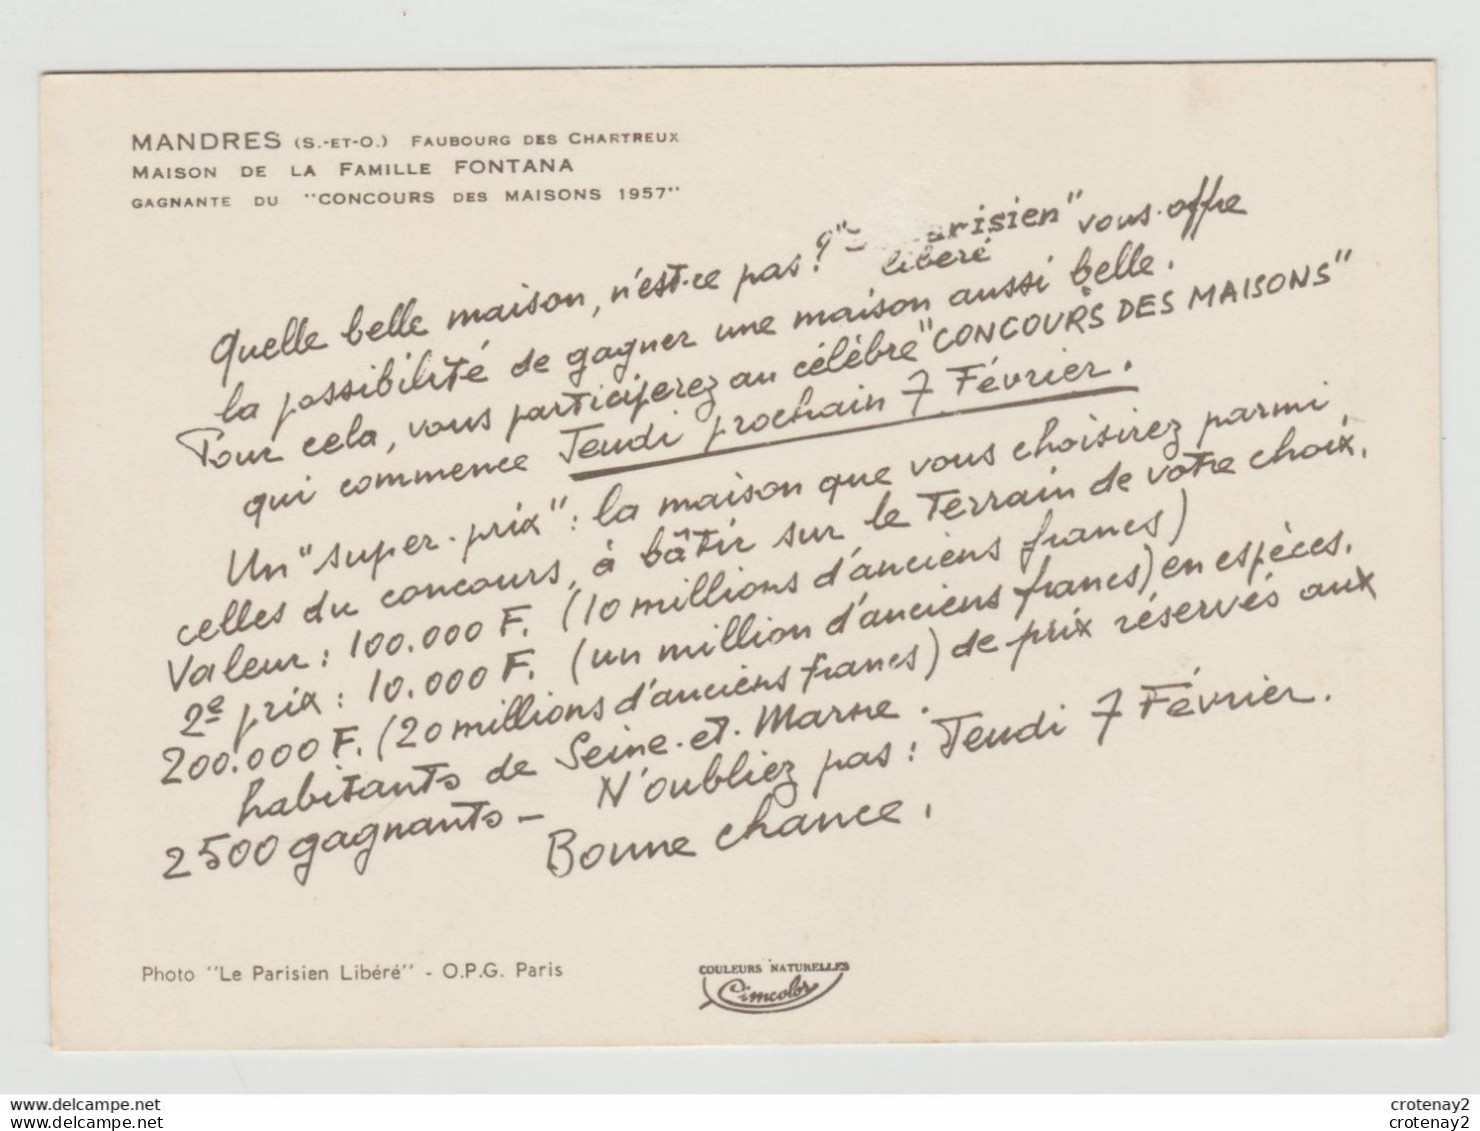 MANDRES (S.-ET-O.) FAUBOURG DES CHARTREUX
MAISON DE LA FAMILLE FONTANA
GAGNANTE DU "CONCOURS DES MAISONS 1957"
Quelle belle maison, n'est-ce pas? "Le Parisien" vous offre
libéré
la possibilité de gagner une maison aussi belle.
Pour cela, vous participerez au célèbre "CONCOURS DES MAISONS"
qui commence Jeudi prochain 7 Février.
Un "super-prix": la maison que vous choisirez parmi
celles du concours, à bâtir sur le terrain de votre choix.
Valeur: 100.000 F. (10 millions d'anciens francs)
2e prix: 10.000 F. (un million d'anciens francs) en espèces.
200.000 F. (20 millions d'anciens francs) de prix réservés aux
habitants de Seine-et-Marne.
2500 gagnants - N'oubliez pas: Jeudi 7 Février.
Bonne chance.
Photo "Le Parisien Libéré" - O.P.G. Paris
COULEURS NATURELLES
Cimcolor
delcampe.net
crotenay2
crotenay2